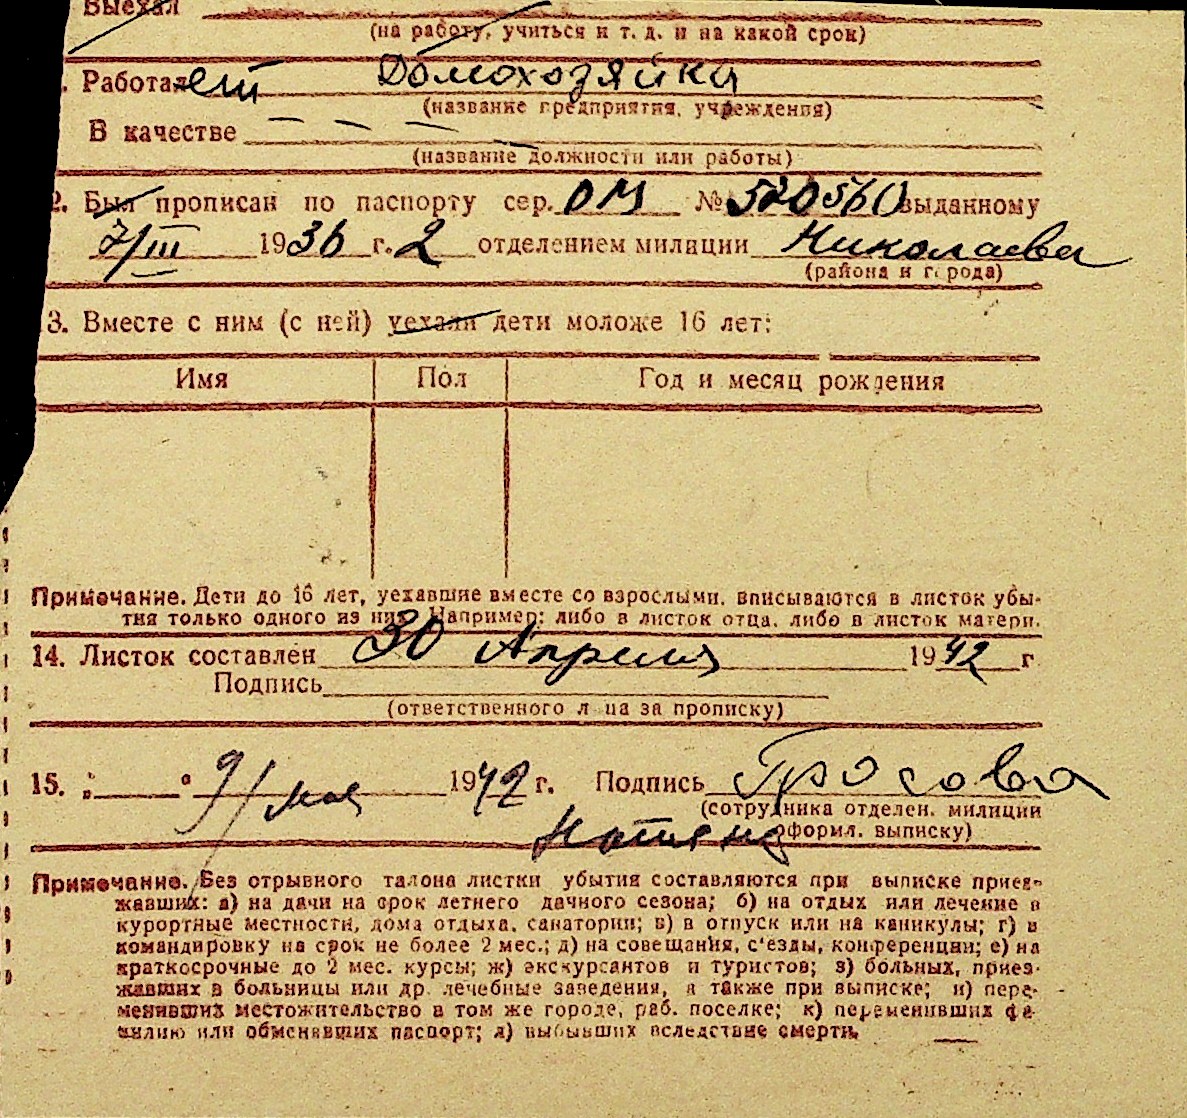 Выехал
(на работу, учиться и т. д. и на какой срок)
. Работает Домохозяйка
(название предприятия, учреждения)
В качестве
(название должности или работы)
2. Был прописан по паспорту сер. ОМ № 520560 выданному
7/III 1936 г. 2 отделением милиции Николаева
(района и города)
13. Вместе с ним (с ней) уехали дети моложе 16 лет:
Имя Пол Год и месяц рождения
Примечание. Дети до 16 лет, уехавшие вместе со взрослыми, вписываются в листок убы-
тия только одного из них. Например: либо в листок отца, либо в листок матери.
14. Листок составлен 30 Апреля 1942 г
Подпись
(ответственного лица за прописку)
15. " " 9/мая 1942 г. Подпись
(сотрудника отделен. милиции
оформл. выписку)
Примечание. Без отрывного талона листки убытия составляются при выписке приез-
жавших: а) на дачи на срок летнего дачного сезона; б) на отдых или лечение в
курортные местности, дома отдыха, санатории; в) в отпуск или на каникулы; г) в
командировку на срок не более 2 мес.; д) на совещания, с'езды, конференции; е) на
краткосрочные до 2 мес. курсы; ж) экскурсантов и туристов; з) больных, приез-
жавших в больницы или др. лечебные заведения, а также при выписке; и) пере-
менивших местожительство в том же городе, раб. поселке; к) переменивших фа-
милию или обменявших паспорт; л) выбывших вследствие смерти.